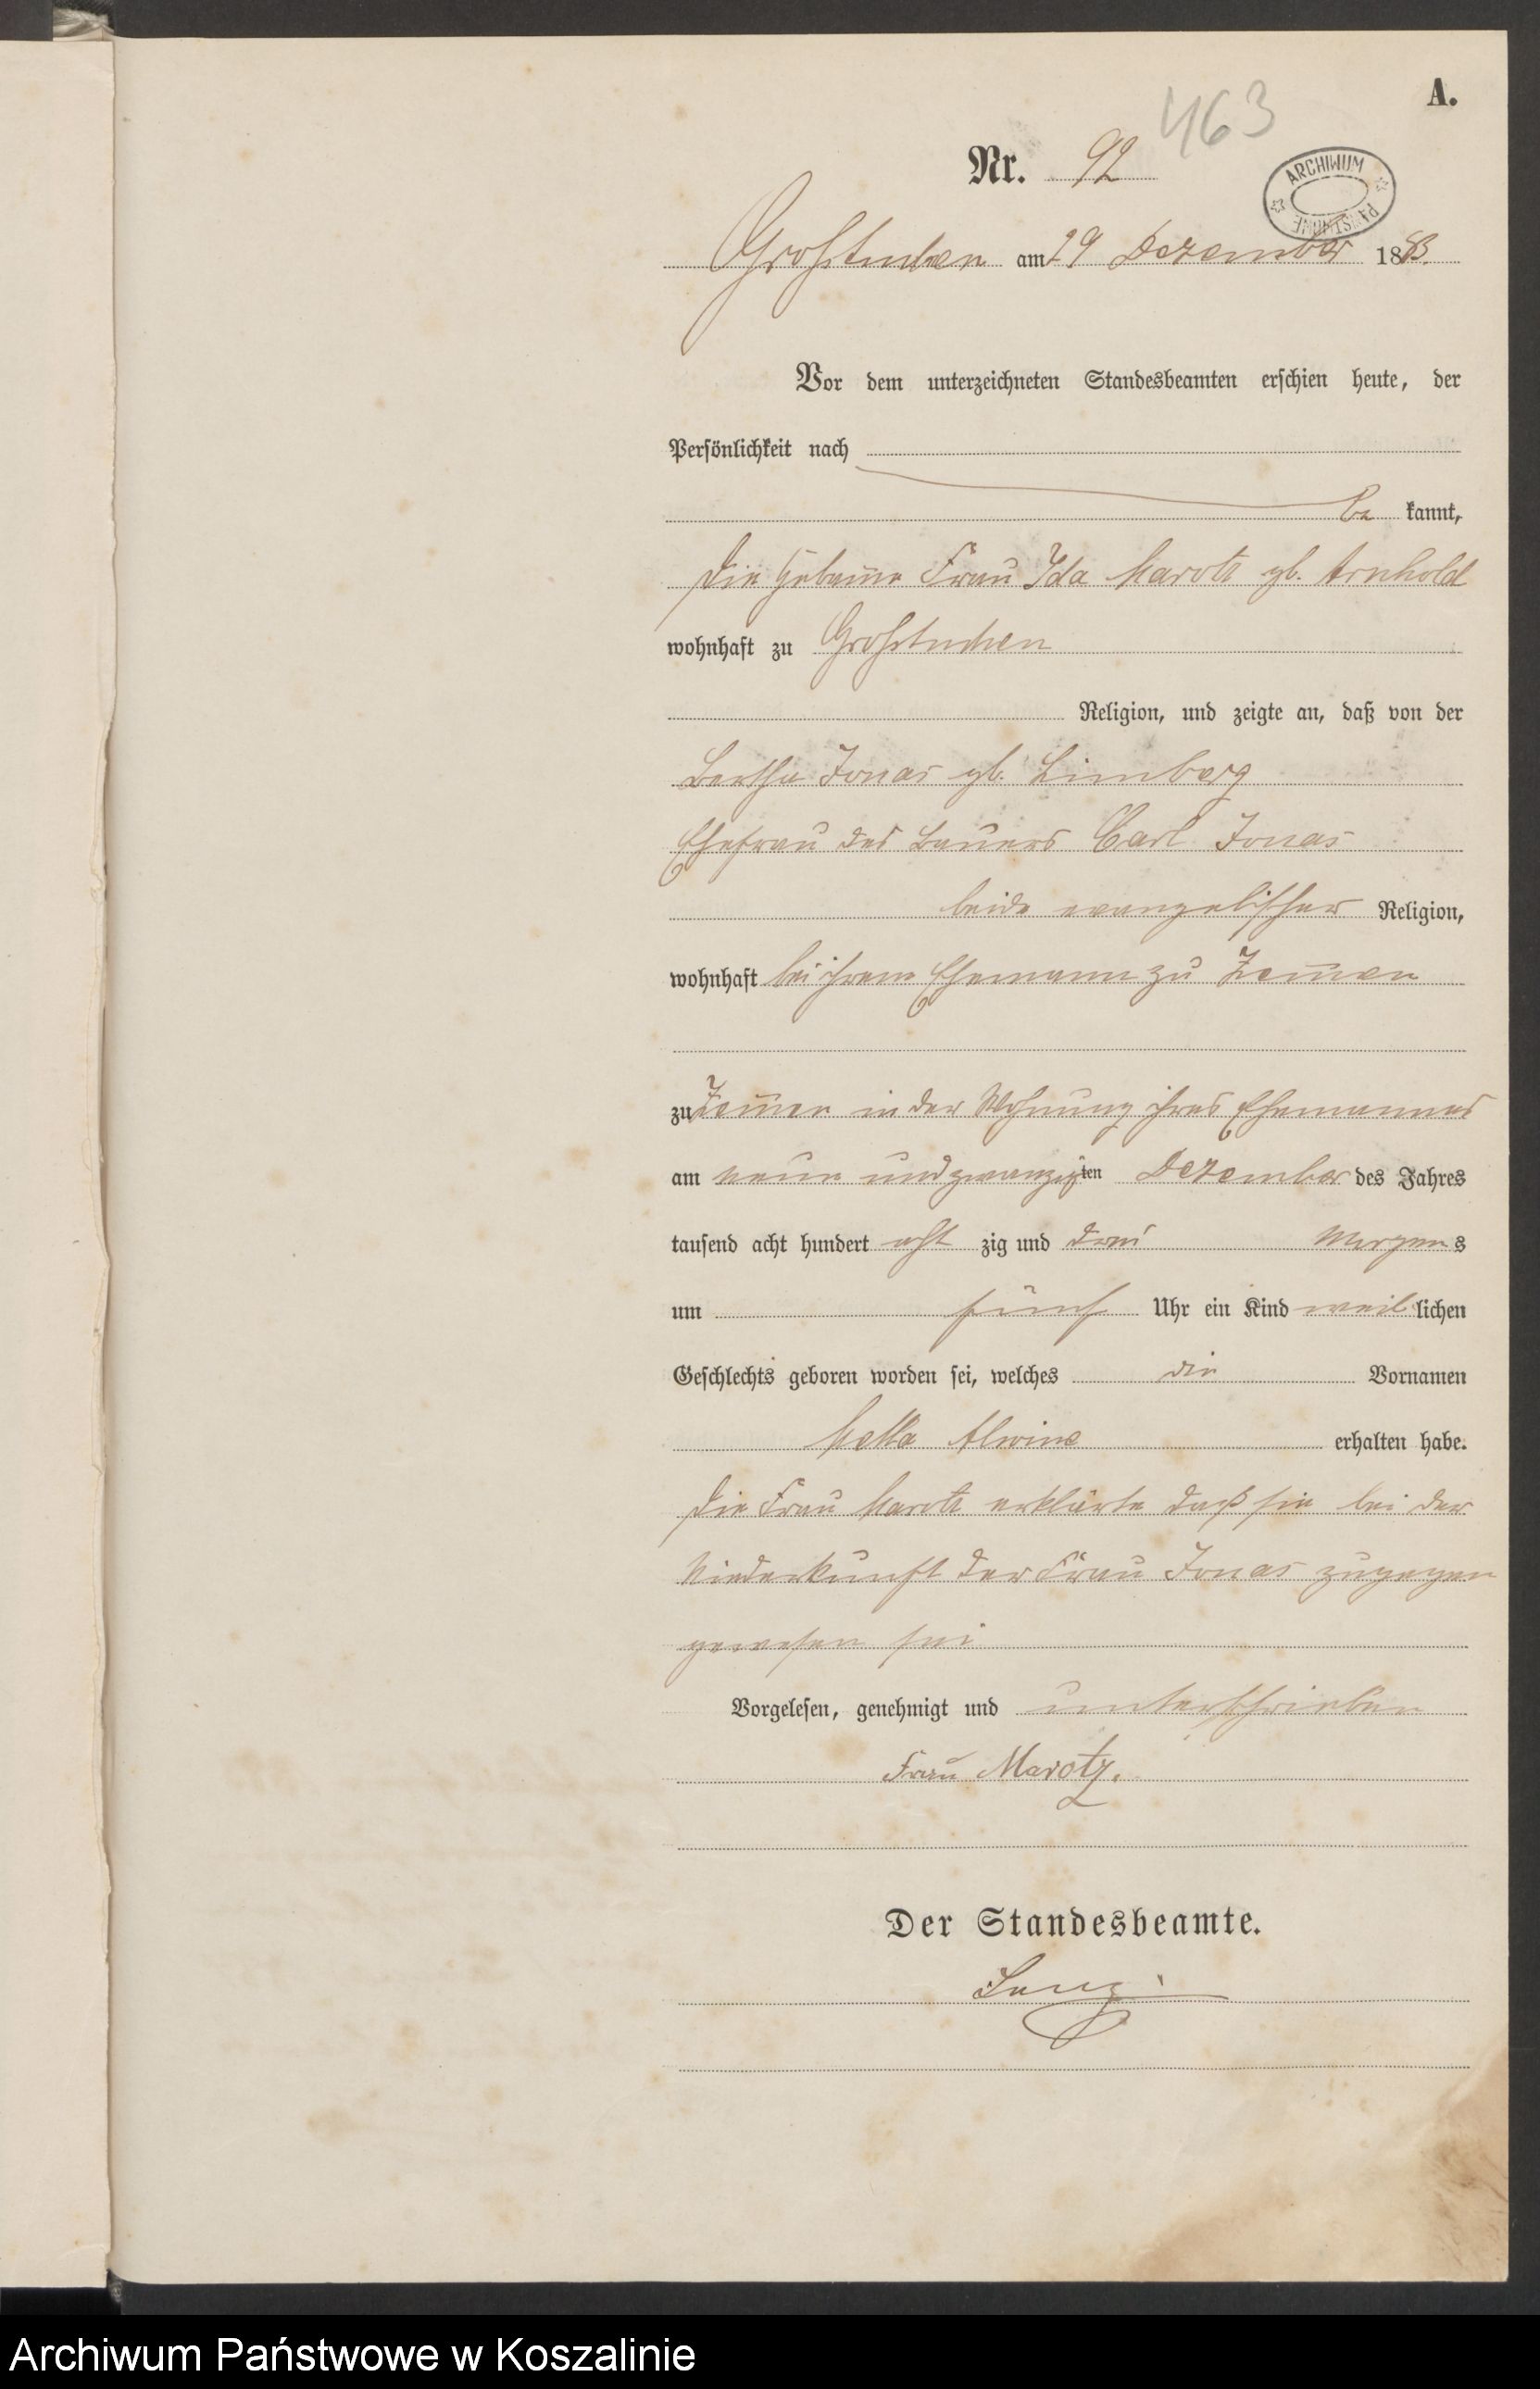 A.
463
Nr. 92
ARCHIWUM PAŃSTWOWE
Großtuchen am 29 Dezember 1883.
Vor dem unterzeichneten Standesbeamten erschien heute, der
Persönlichkeit nach
be kannt,
die Hebamme Frau Ida Marotz gb. Arnhold
wohnhaft zu Großtuchen
Religion, und zeigte an, daß von der
Bertha Jonas gb. Limberg
Ehefrau des Bauers Carl Jonas
beide evangelischer Religion,
wohnhaft bei ihrem Ehemann zu Zem̄en
zu Zem̄en in der Wohnung ihres Ehemannes
am neun und zwanzigsten Dezember des Jahres
tausend acht hundert acht zig und drei Morgens
um fünf Uhr ein Kind weiblichen
Geschlechts geboren worden sei, welches die Vornamen
Alwine erhalten habe.
Die Frau Marotz erklärte daß sie bei der
Niederkunft der Frau Jonas zugegen
gewesen sei
Vorgelesen, genehmigt und unterschrieben
Frau Marotz.
Der Standesbeamte.
Archiwum Państwowe w Koszalinie